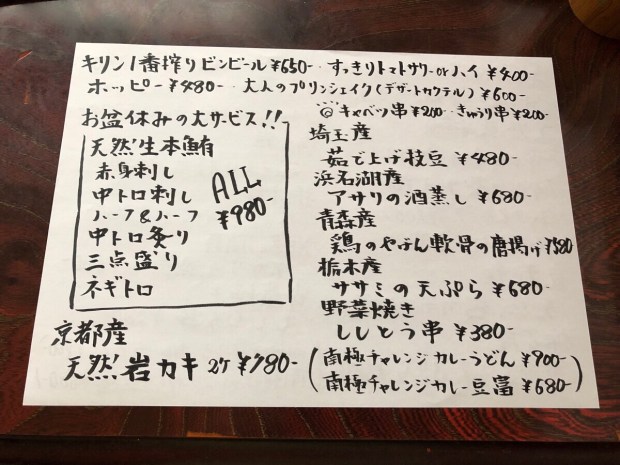 キリン1番搾りビンビール ¥650- すっきりトマトサワーorハイ ¥400-
ホッピー ¥480- 大人のプリンシェイク(デザートカクテル) ¥600-
◎キャベツ串 ¥200- きゅうり串 ¥200-
お盆休みの大サービス!!
天然生本鮪
赤身刺し
中トロ刺し
ハーフ&ハーフ
中トロ炙り
三点盛り
ネギトロ
ALL
¥980-
京都産
天然岩カキ 2ケ ¥780-
埼玉産
茹で上げ枝豆 ¥480-
浜名湖産
アサリの酒蒸し ¥680-
青森産
鶏のやげん軟骨の唐揚げ ¥580
栃木産
ササミの天ぷら ¥680-
野菜焼き
ししとう串 ¥380-
(南極チャレンジカレーうどん ¥900-
南極チャレンジカレー豆富 ¥680-)